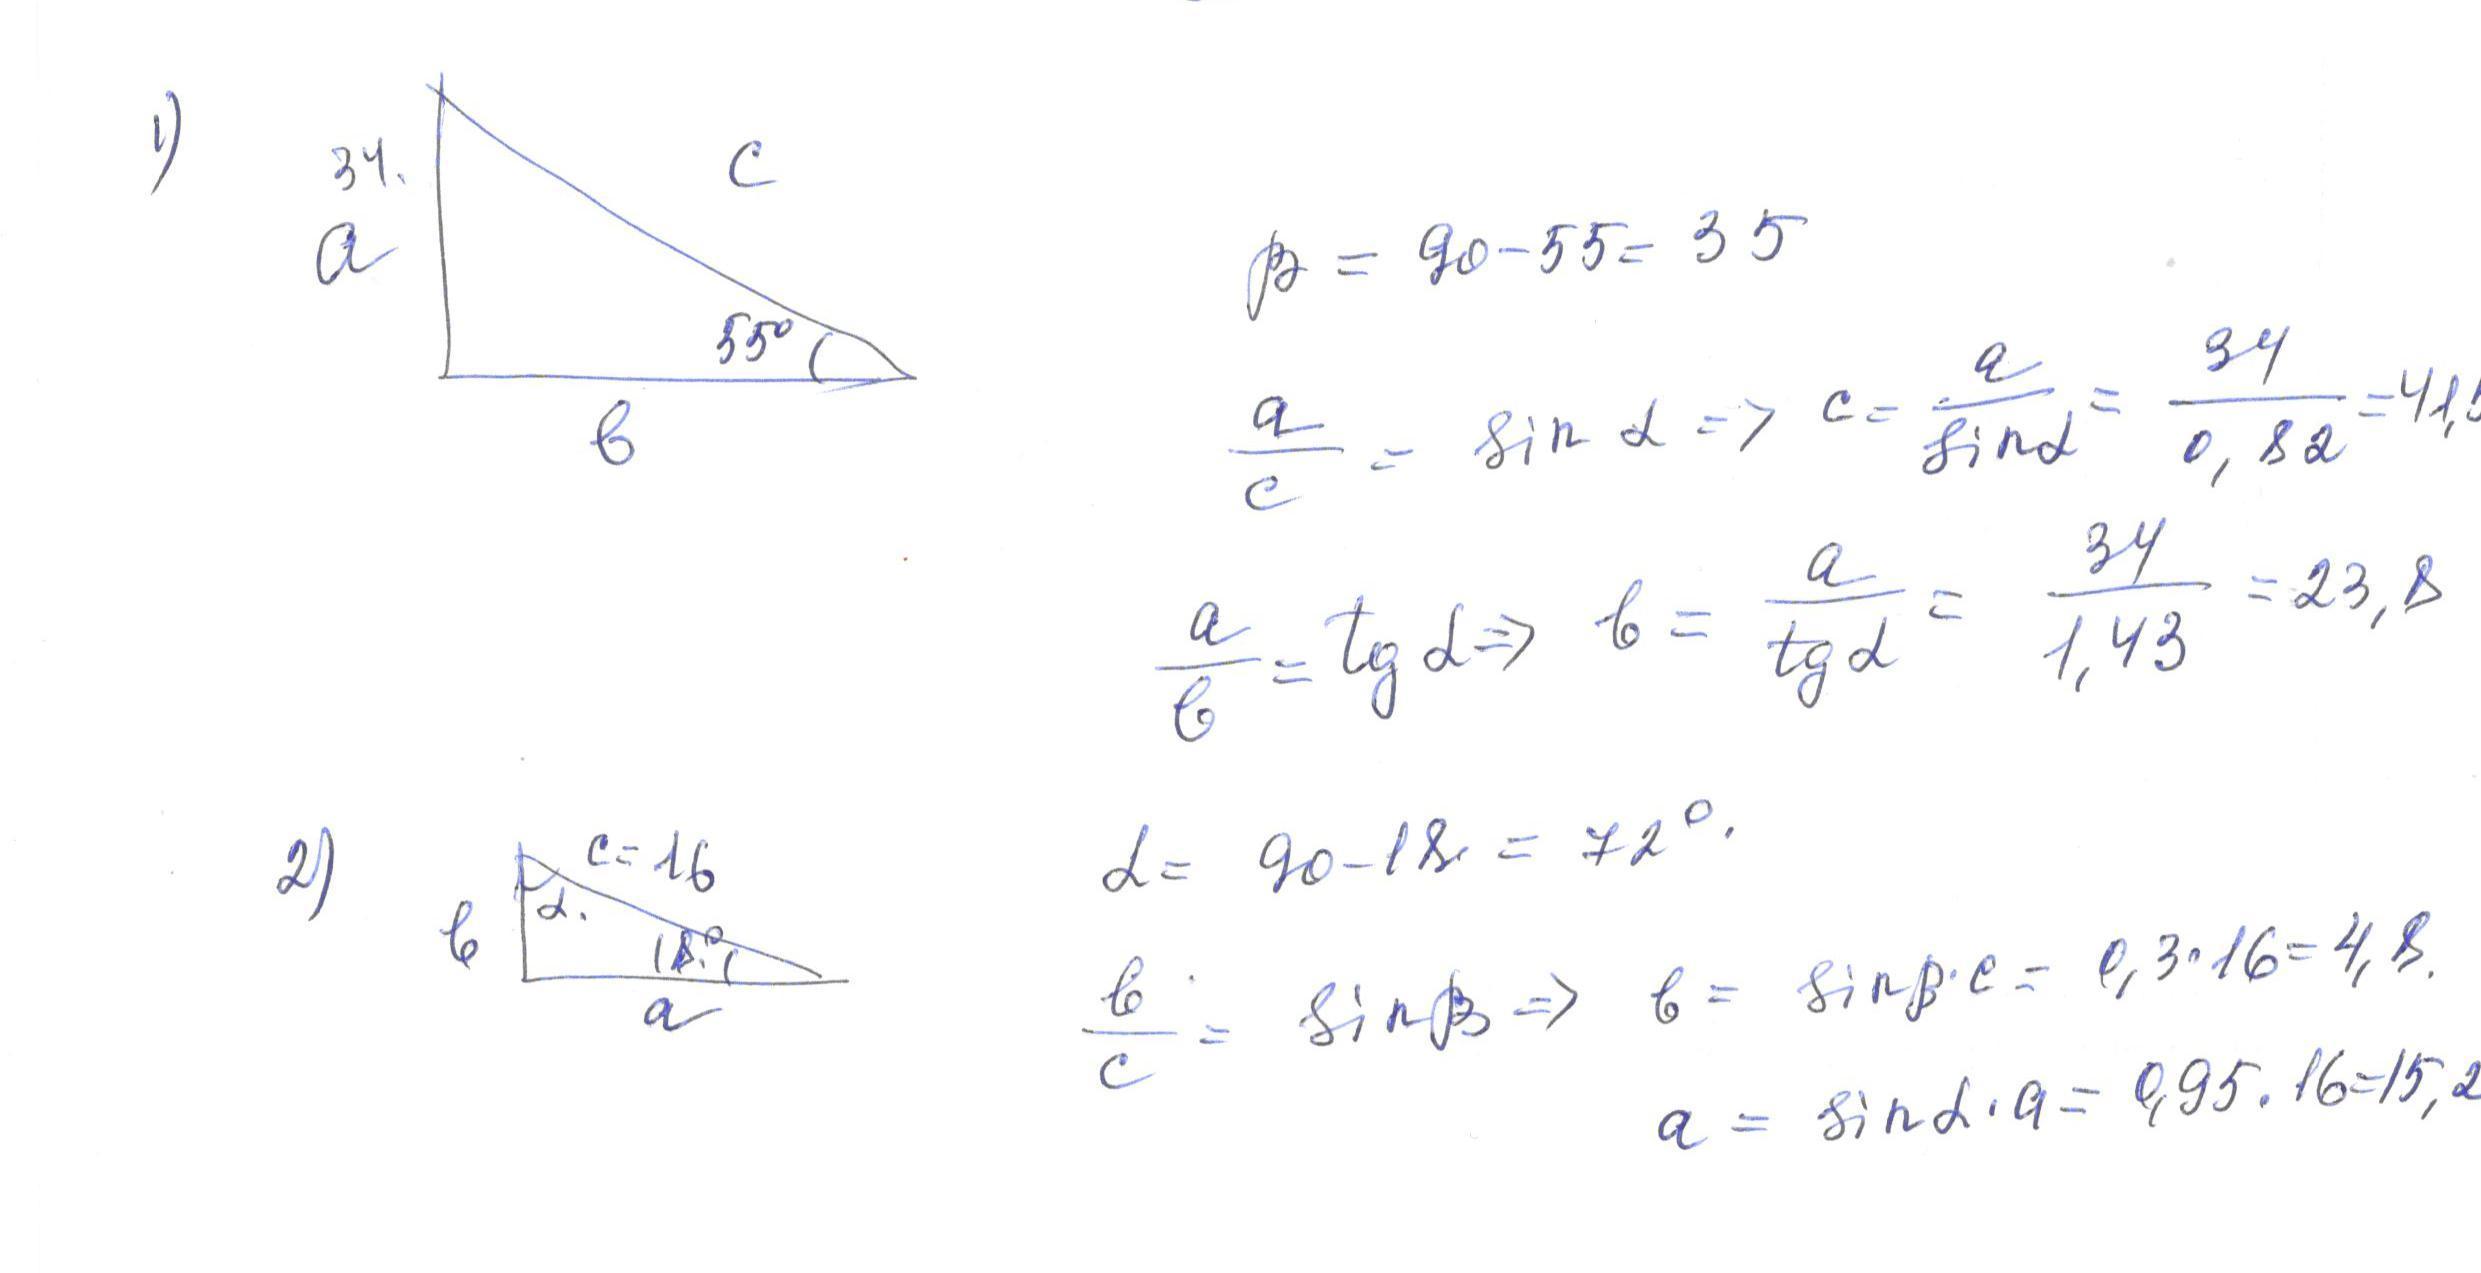 1)
34.
a
c
55°
b
β = 90-55= 35
a/c = sin α => c= a/sinα = 34/0,82 =41,5
a/b = tg α => b = a/tg α = 34/1,43 = 23,8
2)
c=16
b
α.
18°
a
α= 90-18 = 72°.
b/c = sinβ => b = sinβ·c = 0,3·16=4,8.
a = sinα·a = 0,95.16=15,2